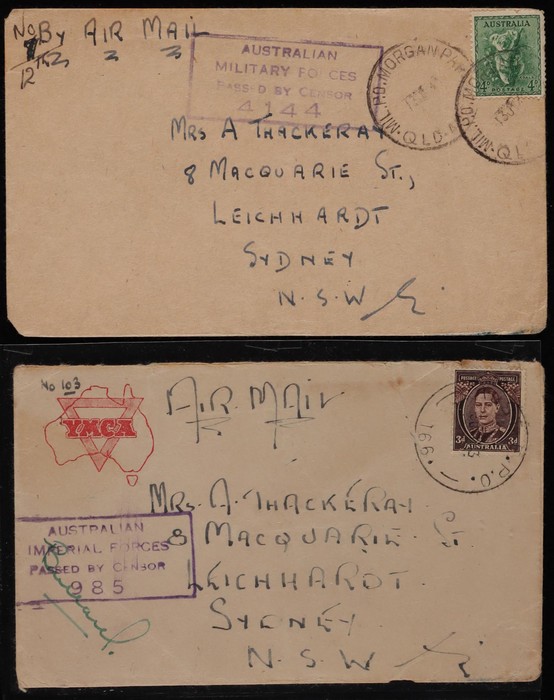 No By AIR MAIL
7
12
AUSTRALIAN
MILITARY FORCES
PASSED BY CENSOR
4144
AUSTRALIA
4D
POSTAGE
MIL.P.O. MORGAN PARK
QLD
MRS A THACKERAY
8 MACQUARIE ST.,
LEICHHARDT
SYDNEY
N.S.W
No 103
AIR MAIL
YMCA
POSTAGE
3d 3d
AUSTRALIA
P.O.
166
MRS. A. THACKERAY
8 MACQUARIE St
LEICHHARDT.
SYDNEY.
N.S.W
AUSTRALIAN
IMPERIAL FORCES
PASSED BY CENSOR
985